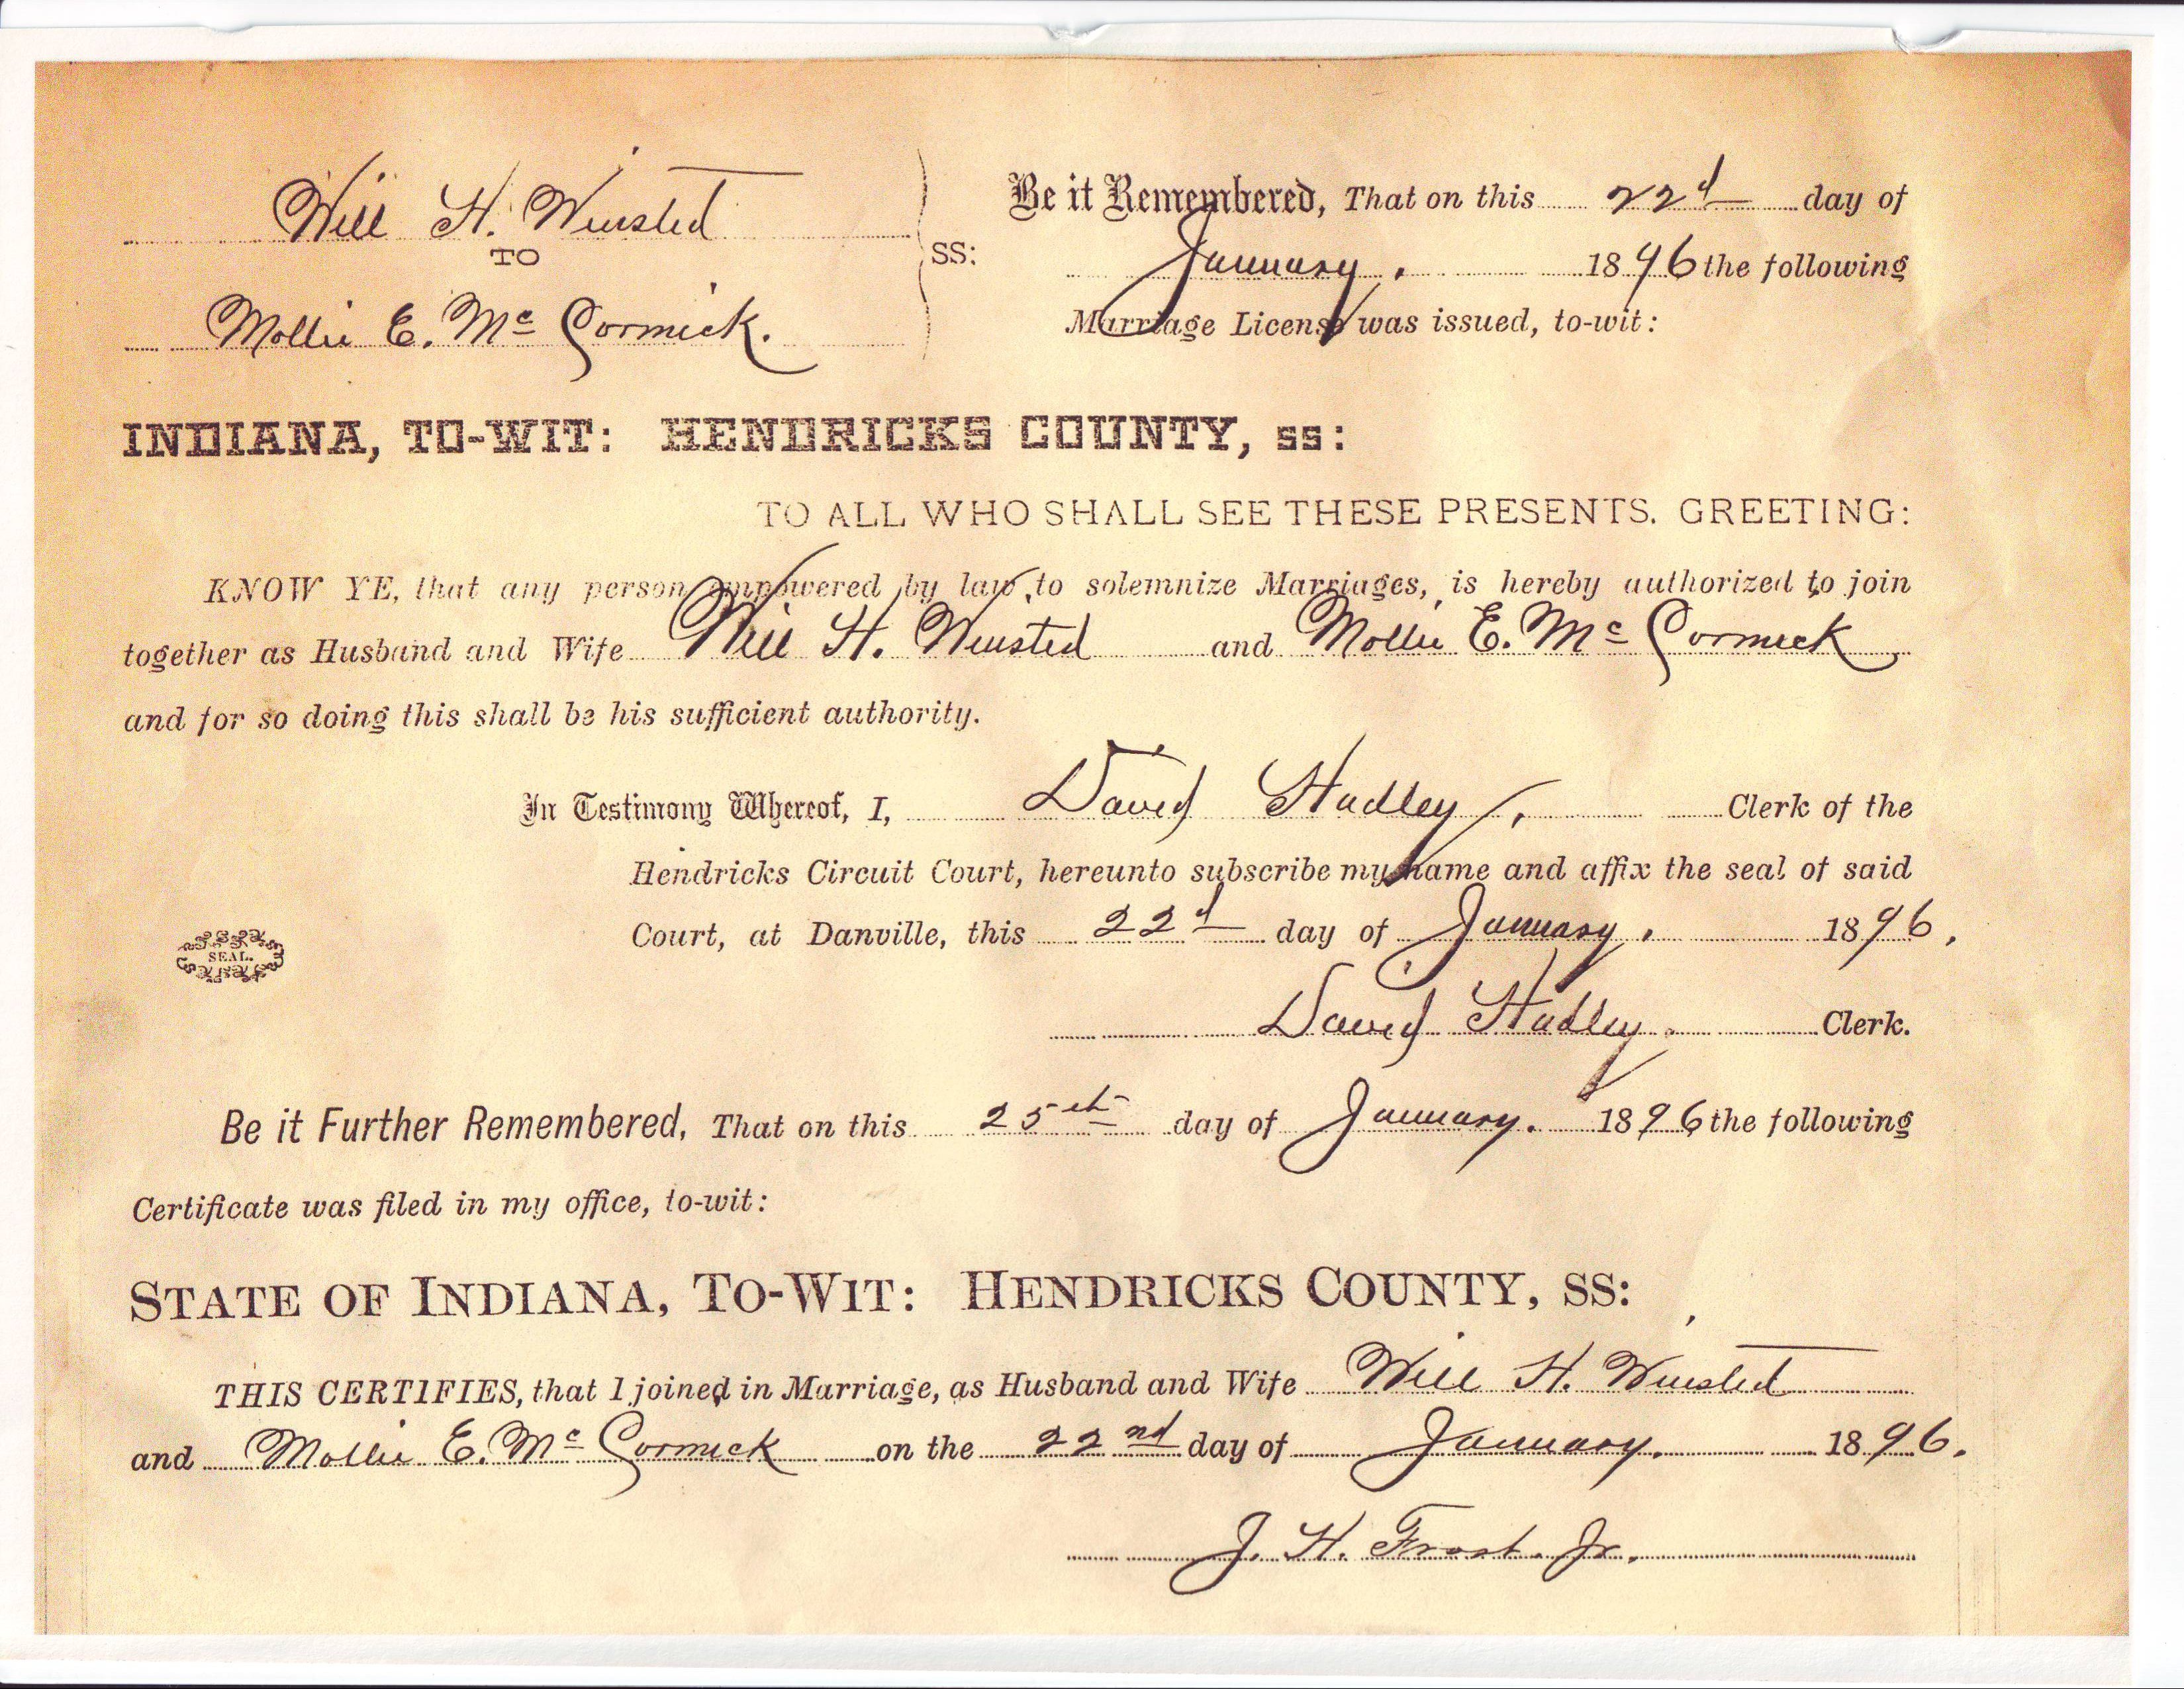 Will H. Winsted
TO
Mollie E. Mc Cormick.
SS:
Be it Remembered, That on this 22d day of
January, 1896 the following
Marriage License was issued, to-wit:
INDIANA, TO-WIT: HENDRICKS COUNTY, ss:
TO ALL WHO SHALL SEE THESE PRESENTS. GREETING:
KNOW YE, that any person empowered by law to solemnize Marriages, is hereby authorized to join
together as Husband and Wife Will H. Winsted and Mollie E. Mc Cormick
and for so doing this shall be his sufficient authority.
In Testimony Whereof, I, David Hadley, Clerk of the
Hendricks Circuit Court, hereunto subscribe my name and affix the seal of said
Court, at Danville, this 22d day of January, 1896,
SEAL.
David Hadley. Clerk.
Be it Further Remembered, That on this 25th day of January. 1896 the following
Certificate was filed in my office, to-wit:
STATE OF INDIANA, TO-WIT: HENDRICKS COUNTY, SS:
THIS CERTIFIES, that I joined in Marriage, as Husband and Wife Will H. Winsted
and Mollie E. Mc Cormick on the 22nd day of January. 1896.
J. H. Frost. Jr.